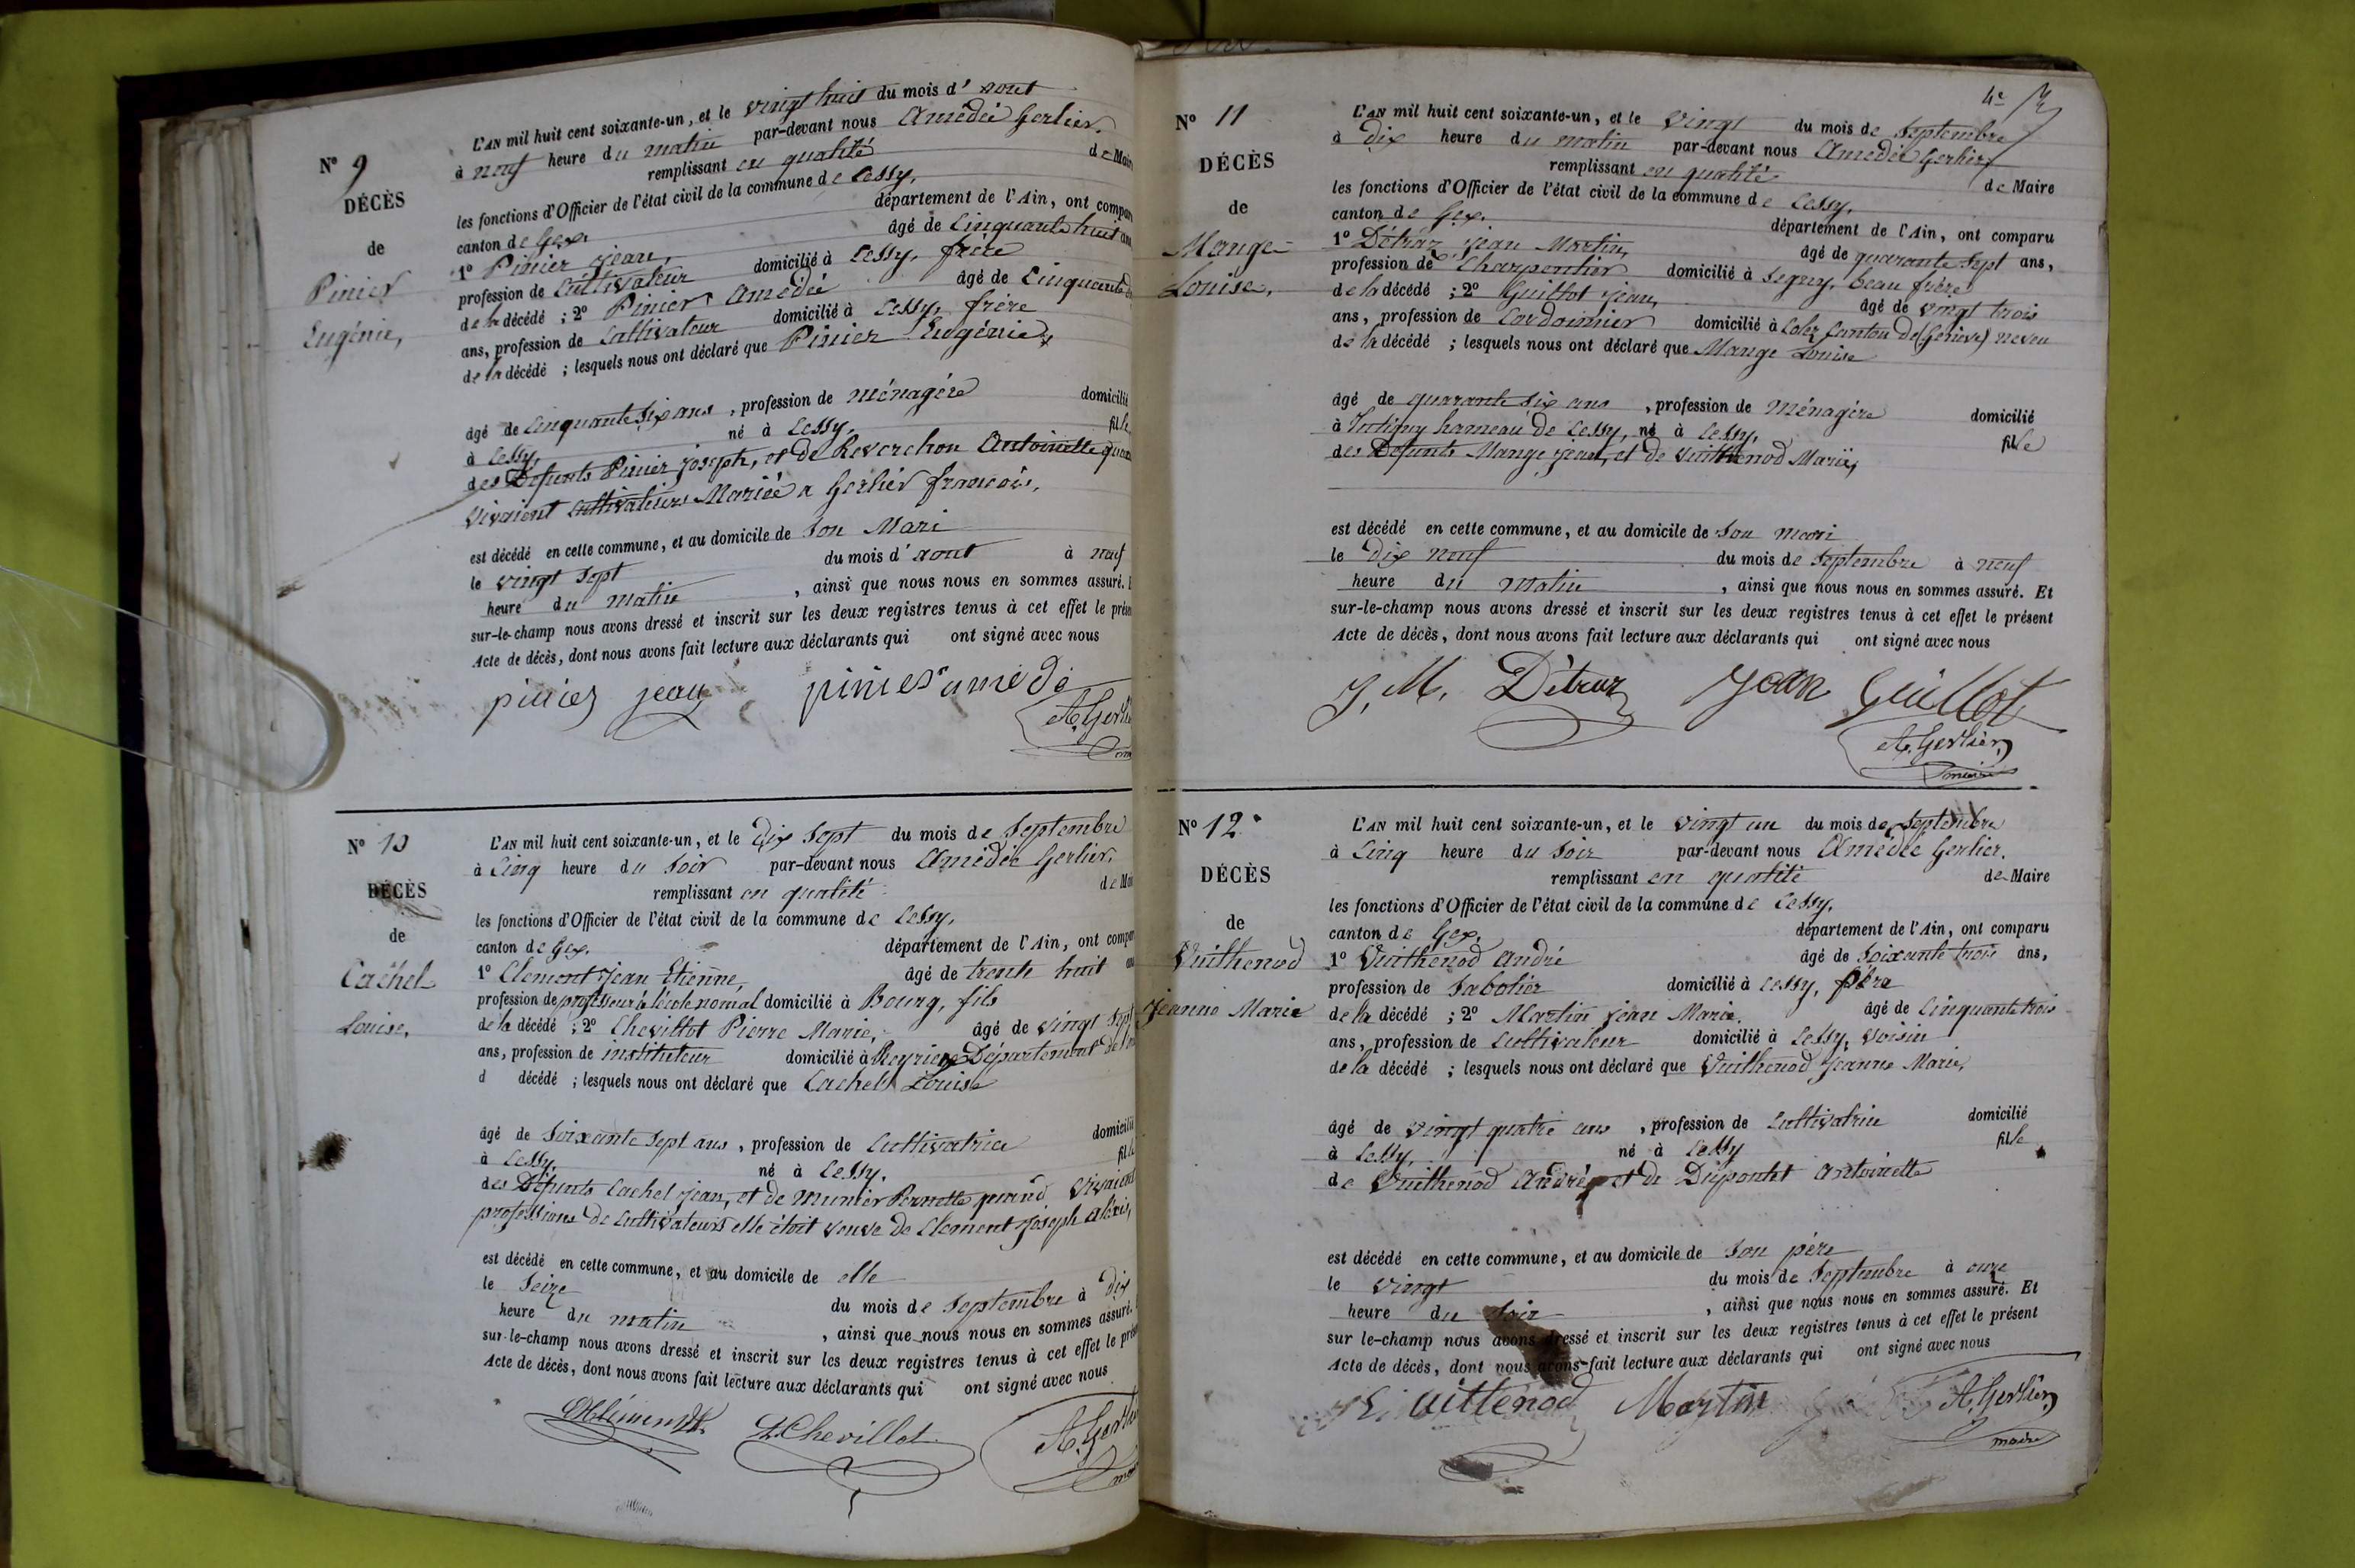 N° 9
DÉCÈS
de
Pinier
Eugénie,
L'AN mil huit cent soixante-un, et le vingt huit du mois d'aout
à neuf heure du matin par-devant nous Amédée Gerlier.
remplissant en qualité de Maire
les fonctions d'Officier de l'état civil de la commune de Cessy,
canton de Gex. département de l'Ain, ont compar
1° Pinier jean, âgé de Cinquante huit ans
profession de Cultivateur domicilié à Cessy, frère
de la décédé ; 2° Pinier Amédée âgé de Cinquante
ans, profession de Cultivateur domicilié à Cessy, frère
de la décédé ; lesquels nous ont déclaré que Pinier Eugénie,
âgé de Cinquante six ans, profession de ménagère domicilié
à Cessy, né à Cessy, fille
des Défunts Pinier joseph, et de Reverchon Antoinette quan
vivaient cultivateurs Mariée a Gerlier françois,
est décédé en cette commune, et au domicile de Son Mari
le vingt Sept du mois d'aout à neuf
heure du matin, ainsi que nous nous en sommes assuré. E
sur-le-champ nous avons dressé et inscrit sur les deux registres tenus à cet effet le présen
Acte de décès, dont nous avons fait lecture aux déclarants qui ont signé avec nous
pinier jean pinier amédé
A. Gerli
N° 10
DÉCÈS
de
Cachel
Louise,
L'AN mil huit cent soixante-un, et le Dix Sept du mois de Septembre
à Cinq heure du Soir par-devant nous Amédée Gerlier.
remplissant en qualité de Mai
les fonctions d'Officier de l'état civil de la commune de Cessy,
canton de Gex. département de l'Ain, ont compar
1° Clement jean Etienne, âgé de trente huit an
profession de professeur à l'école normal domicilié à Bourg, fils
de la décédé ; 2° Chevillot Pierre Marie, âgé de vingt Sept
ans, profession de instituteur domicilié à Reyrieux Département de l'ain
d décédé ; lesquels nous ont déclaré que Cachel Louise
âgé de Soixante Sept ans, profession de Cultivatrice domicilié
à Cessy, né à Cessy, fille
des Défunts Cachel jean, et de Munier Pernette quand vivaient
professions de Cultivateurs elle était veuve de Clement joseph aléxis,
est décédé en cette commune, et au domicile de elle
le Seize du mois de Septembre à Dix
heure du matin, ainsi que nous nous en sommes assuré.
sur-le-champ nous avons dressé et inscrit sur les deux registres tenus à cet effet le prése
Acte de décès, dont nous avons fait lecture aux déclarants qui ont signé avec nous
Clément Chevillot A. Gerlie
4e
N° 11
DÉCÈS
de
Mange
Louise,
L'AN mil huit cent soixante-un, et le vingt du mois de Septembre
à Dix heure du matin par-devant nous Amédée Gerlier
remplissant en qualité de Maire
les fonctions d'Officier de l'état civil de la commune de Cessy,
canton de Gex. département de l'Ain, ont comparu
1° Détraz jean Martin, âgé de quarante Sept ans,
profession de Charpentier domicilié à Segny, beau frère
de la décédé ; 2° Guillot jean, âgé de vingt trois
ans, profession de Cordonnier domicilié à Canton de (Genève) neveu
de la décédé ; lesquels nous ont déclaré que Mange Louise
âgé de quarante six ans, profession de Ménagère domicilié
à hameau de Cessy, né à Cessy, fille
des Défunts Mange jean, et de Vuithenod Marie,
est décédé en cette commune, et au domicile de Son mari
le Dix neuf du mois de Septembre à neuf
heure du matin, ainsi que nous nous en sommes assuré. Et
sur-le-champ nous avons dressé et inscrit sur les deux registres tenus à cet effet le présent
Acte de décès, dont nous avons fait lecture aux déclarants qui ont signé avec nous
J. M. Détraz Jean Guillot
A. Gerlier
maire
N° 12
DÉCÈS
de
Vuithenod
Jeanne Marie
L'AN mil huit cent soixante-un, et le vingt un du mois de Septembre
à Cinq heure du Soir par-devant nous Amédée Gerlier.
remplissant en qualité de Maire
les fonctions d'Officier de l'état civil de la commune de Cessy,
canton de Gex, département de l'Ain, ont comparu
1° Vuithenod André âgé de Soixante trois ans,
profession de Sabotier domicilié à Cessy, père
de la décédé ; 2° Martin jean Marie. âgé de Cinquante trois
ans, profession de Cultivateur domicilié à Cessy, voisin
de la décédé ; lesquels nous ont déclaré que Vuithenod Jeanne Marie,
âgé de vingt quatre ans, profession de Cultivatrice domicilié
à Cessy, né à Cessy fille
de Vuithenod André, et de Dupontet Antoinette
est décédé en cette commune, et au domicile de Son père
le vingt du mois de Septembre à onze
heure du Soir, ainsi que nous nous en sommes assuré. Et
sur le-champ nous avons dressé et inscrit sur les deux registres tenus à cet effet le présent
Acte de décès, dont nous avons fait lecture aux déclarants qui ont signé avec nous
Vuittenod Martin A. Gerlier
maire